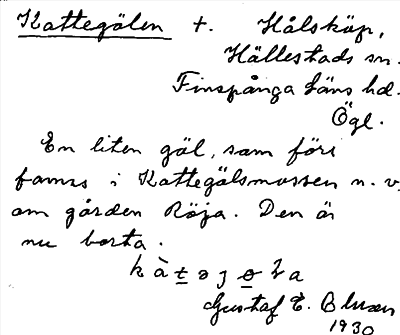 Kattegölen t. Hålsköp,
Hällestads sn.
Finspånga läns hd.
Ögl.
En liten göl, som förr
fanns i Kattegölsmossen n. v.
om gården Röja. Den är
nu borta.
Gustaf E.
1930